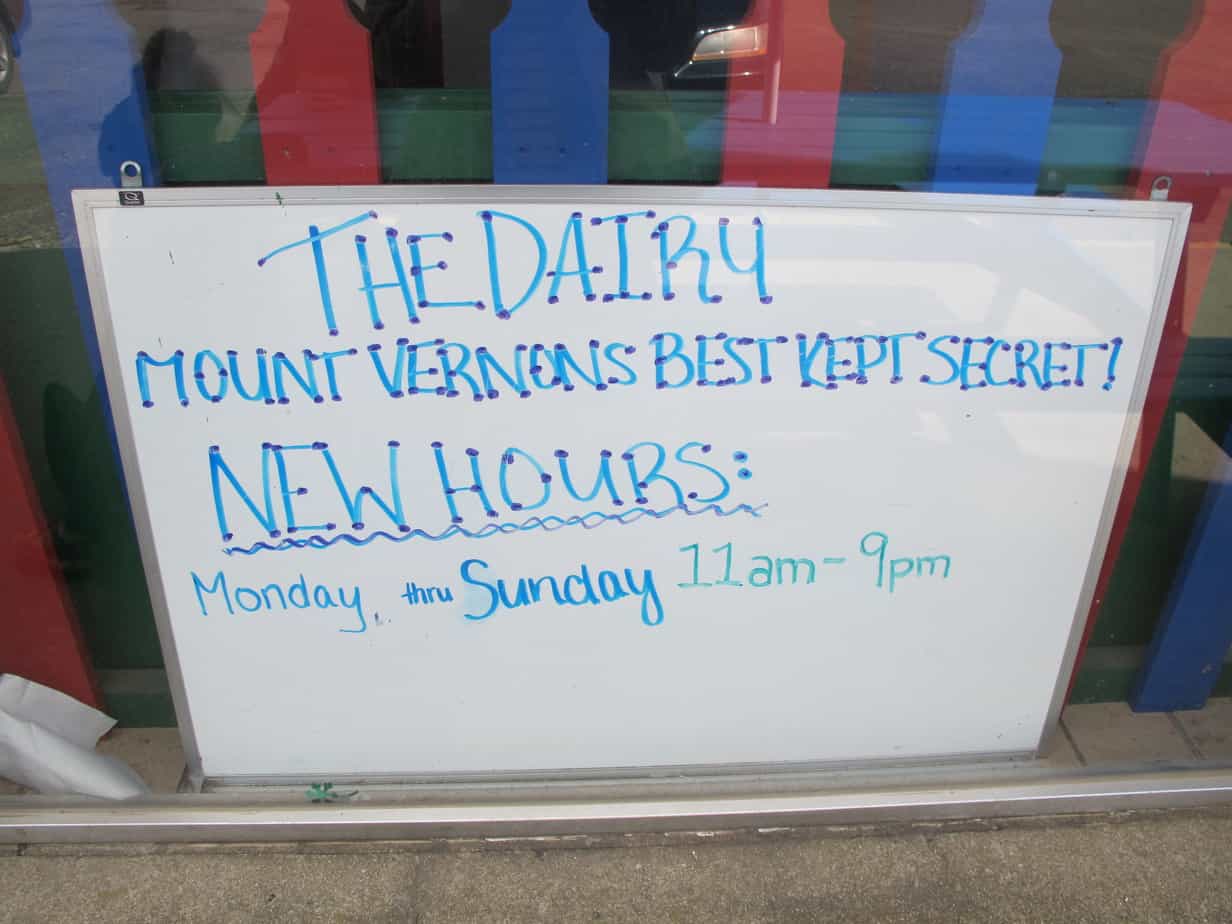 THE DAIRY
MOUNT VERNONS BEST KEPT SECRET!
NEW HOURS:
Monday thru Sunday 11am - 9pm